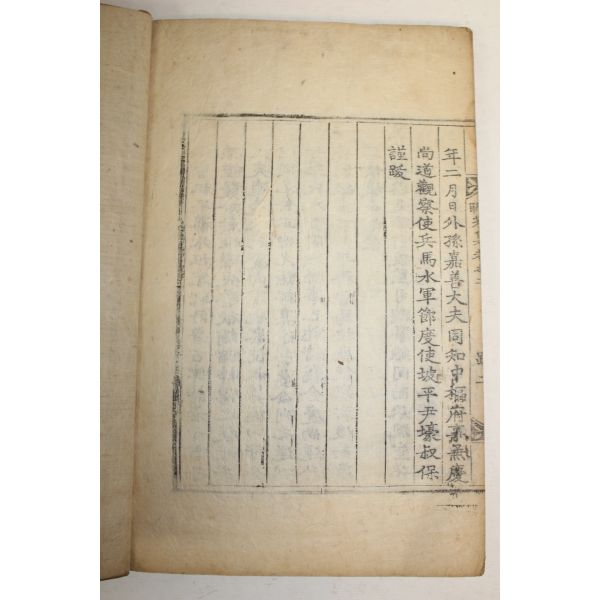 年二月日外孫嘉善大夫同知中樞府事兼慶
尚道觀察使兵馬水軍節度使坡平尹壕叔保
謹跋
跋 二